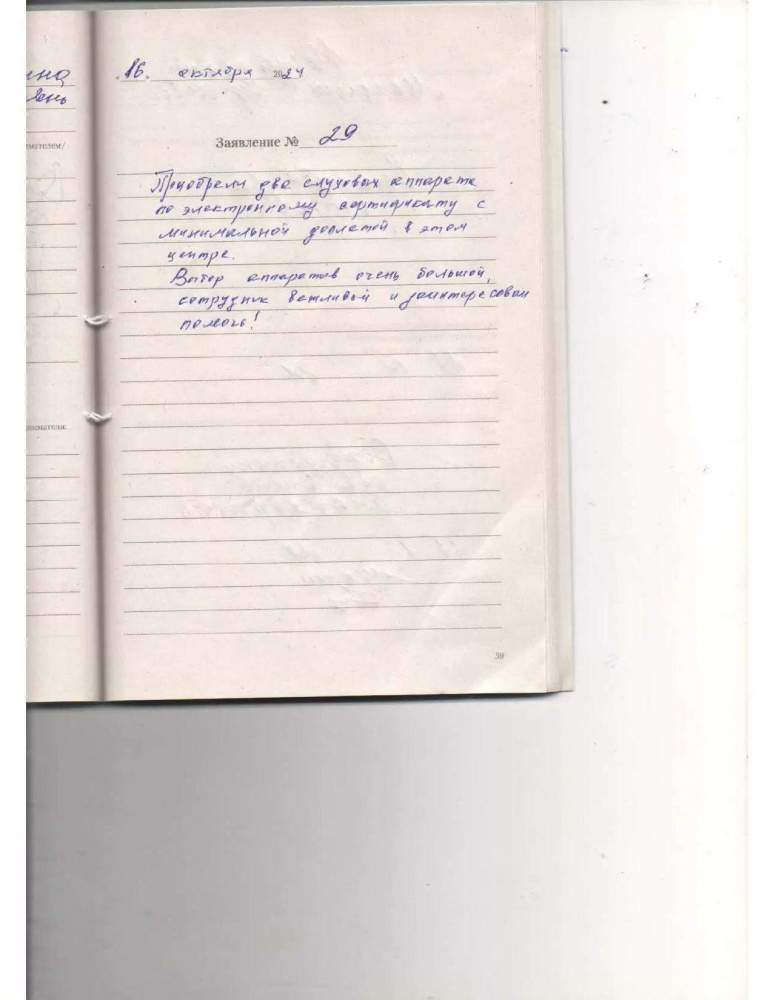 16. октября 2024
Заявление № 29
Приобрели два слуховых аппарата
по электронному сертификату с
минимальной доплатой в этом
центре.
Выбор аппаратов очень большой,
сотрудник вежливый и заинтересован
помочь!
39